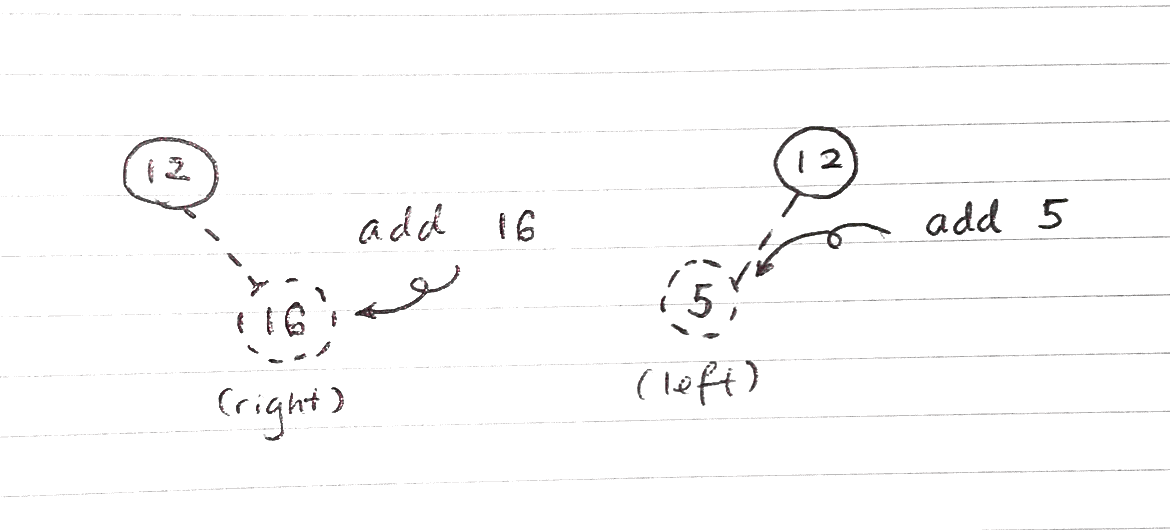 12
add 16
16
(right)
12
add 5
5
(left)